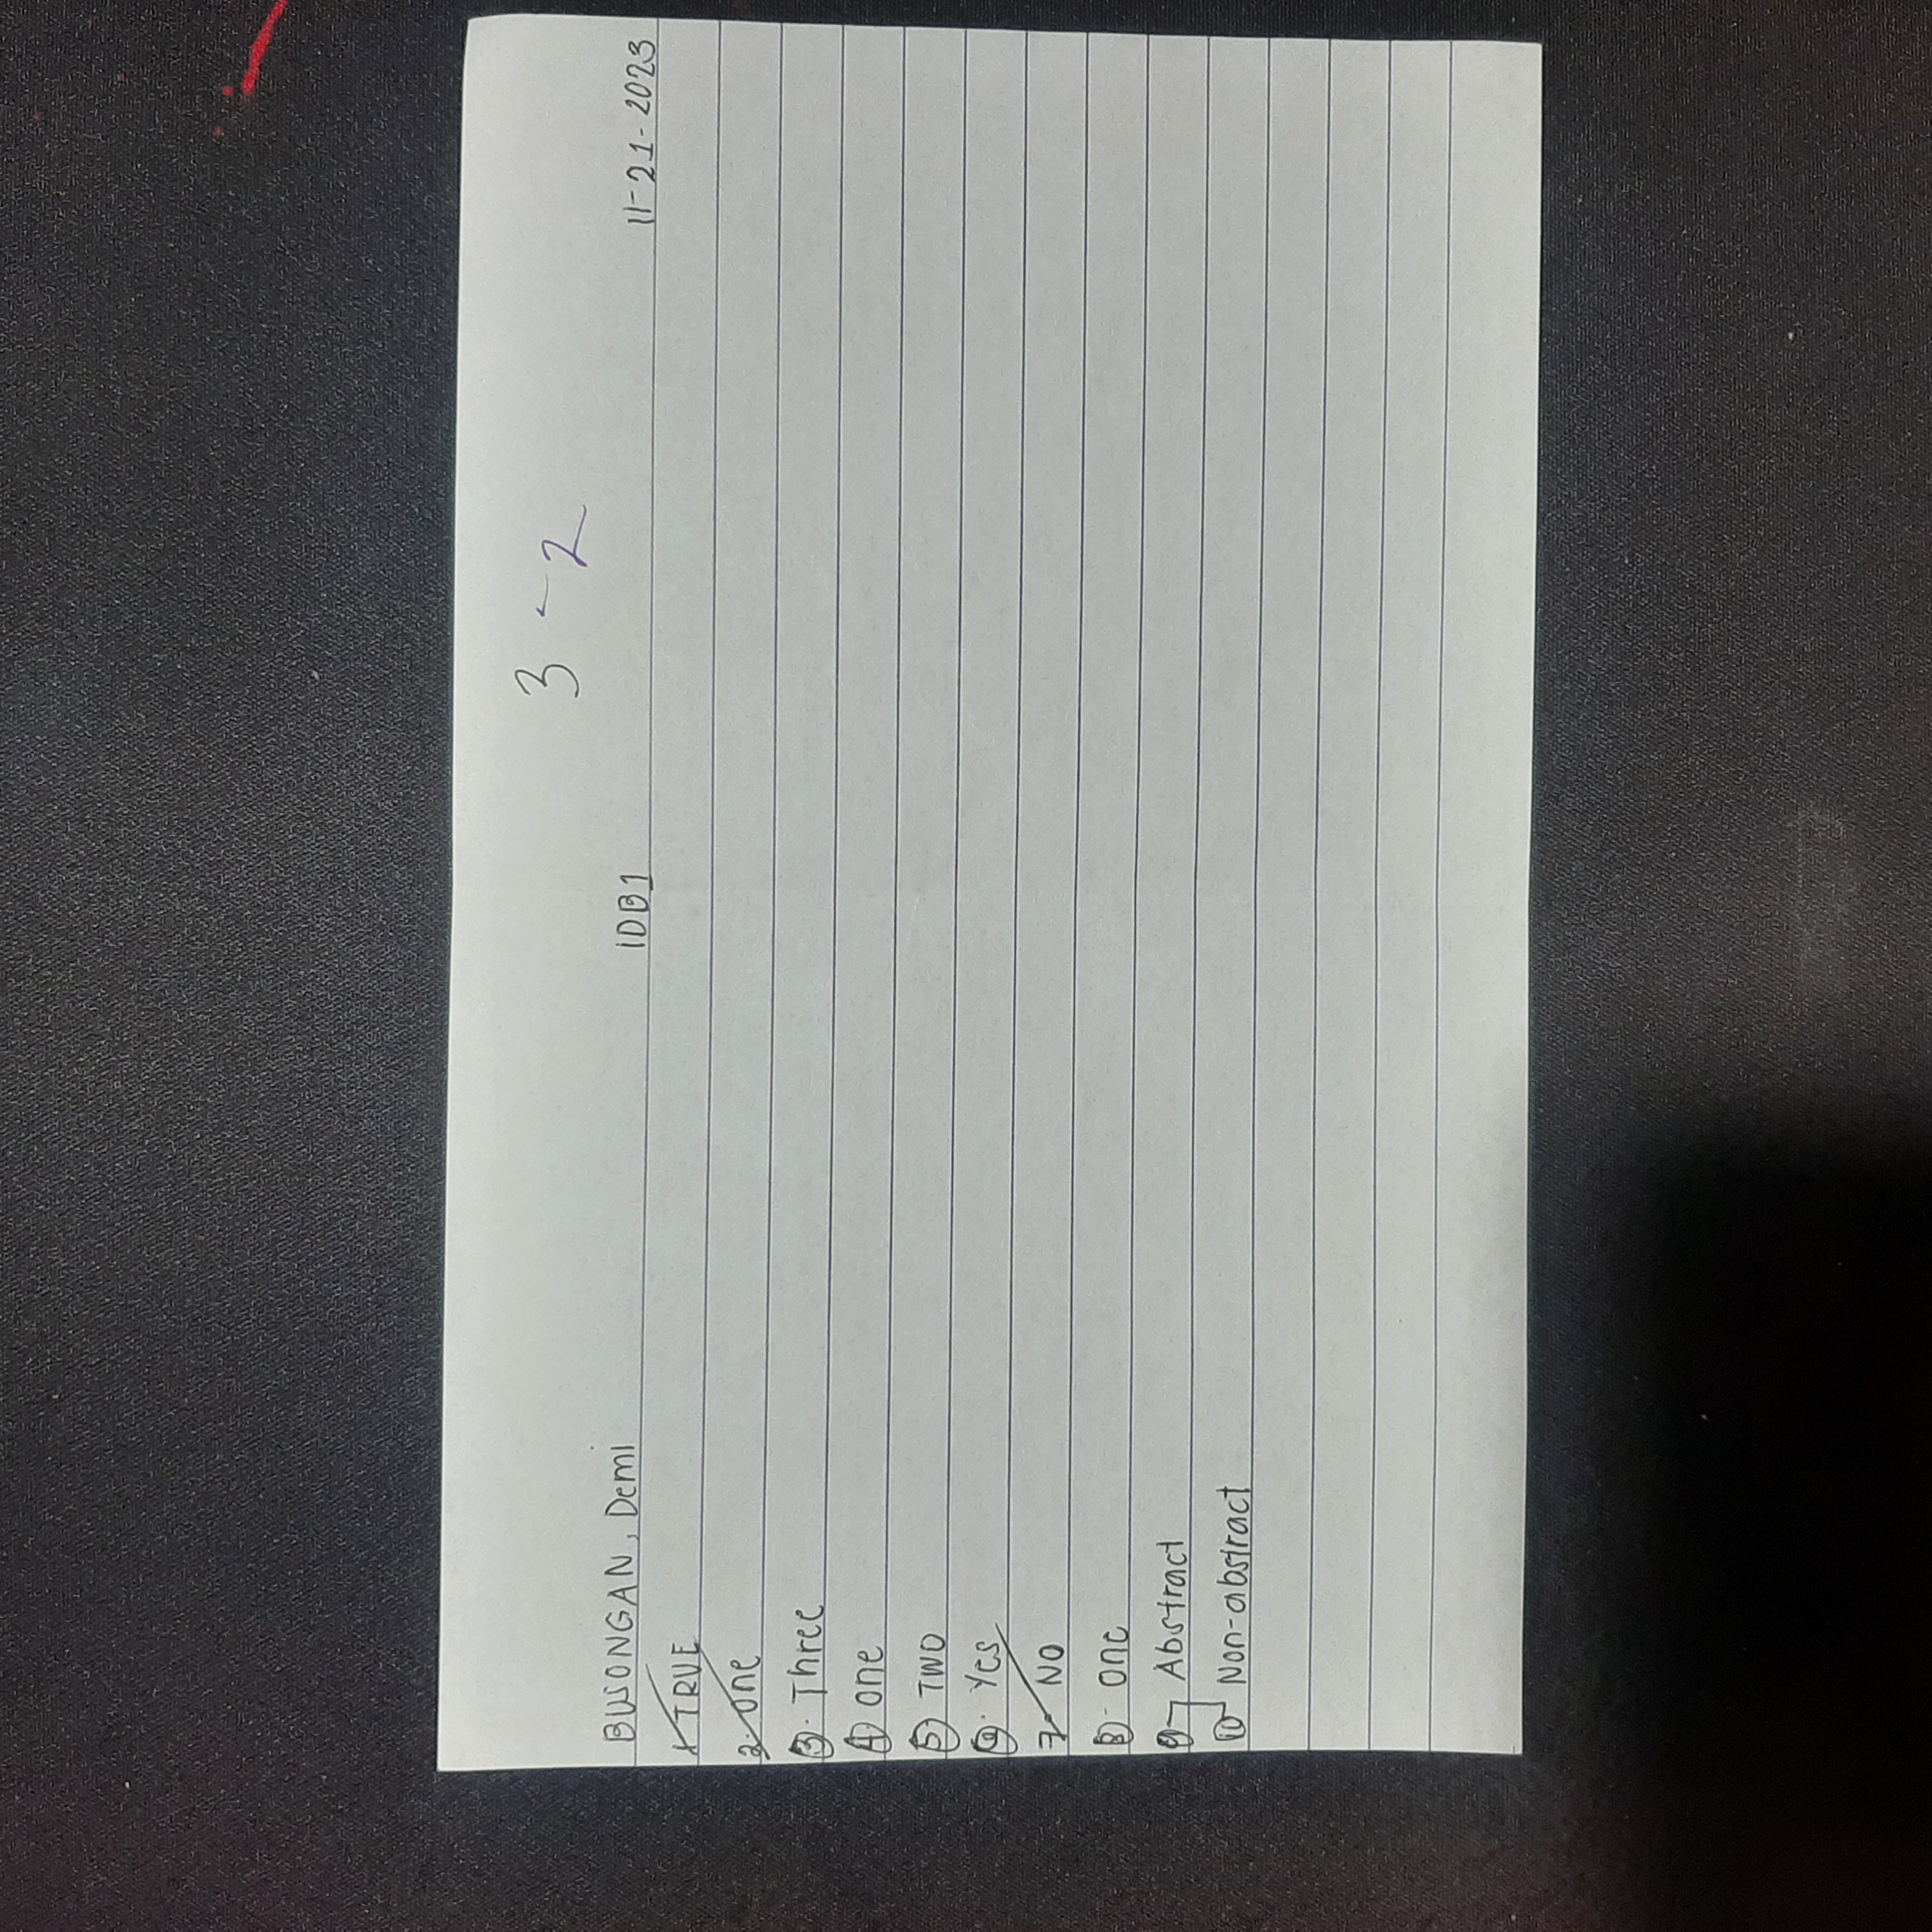 3 - 2
BUSONGAN, Demi IDB1 11-21-2023
1. TRUE
2. one
3. Three
4 one
5 TWO
6. Yes
7- NO
8- one
9 Abstract
10 Non-abstract